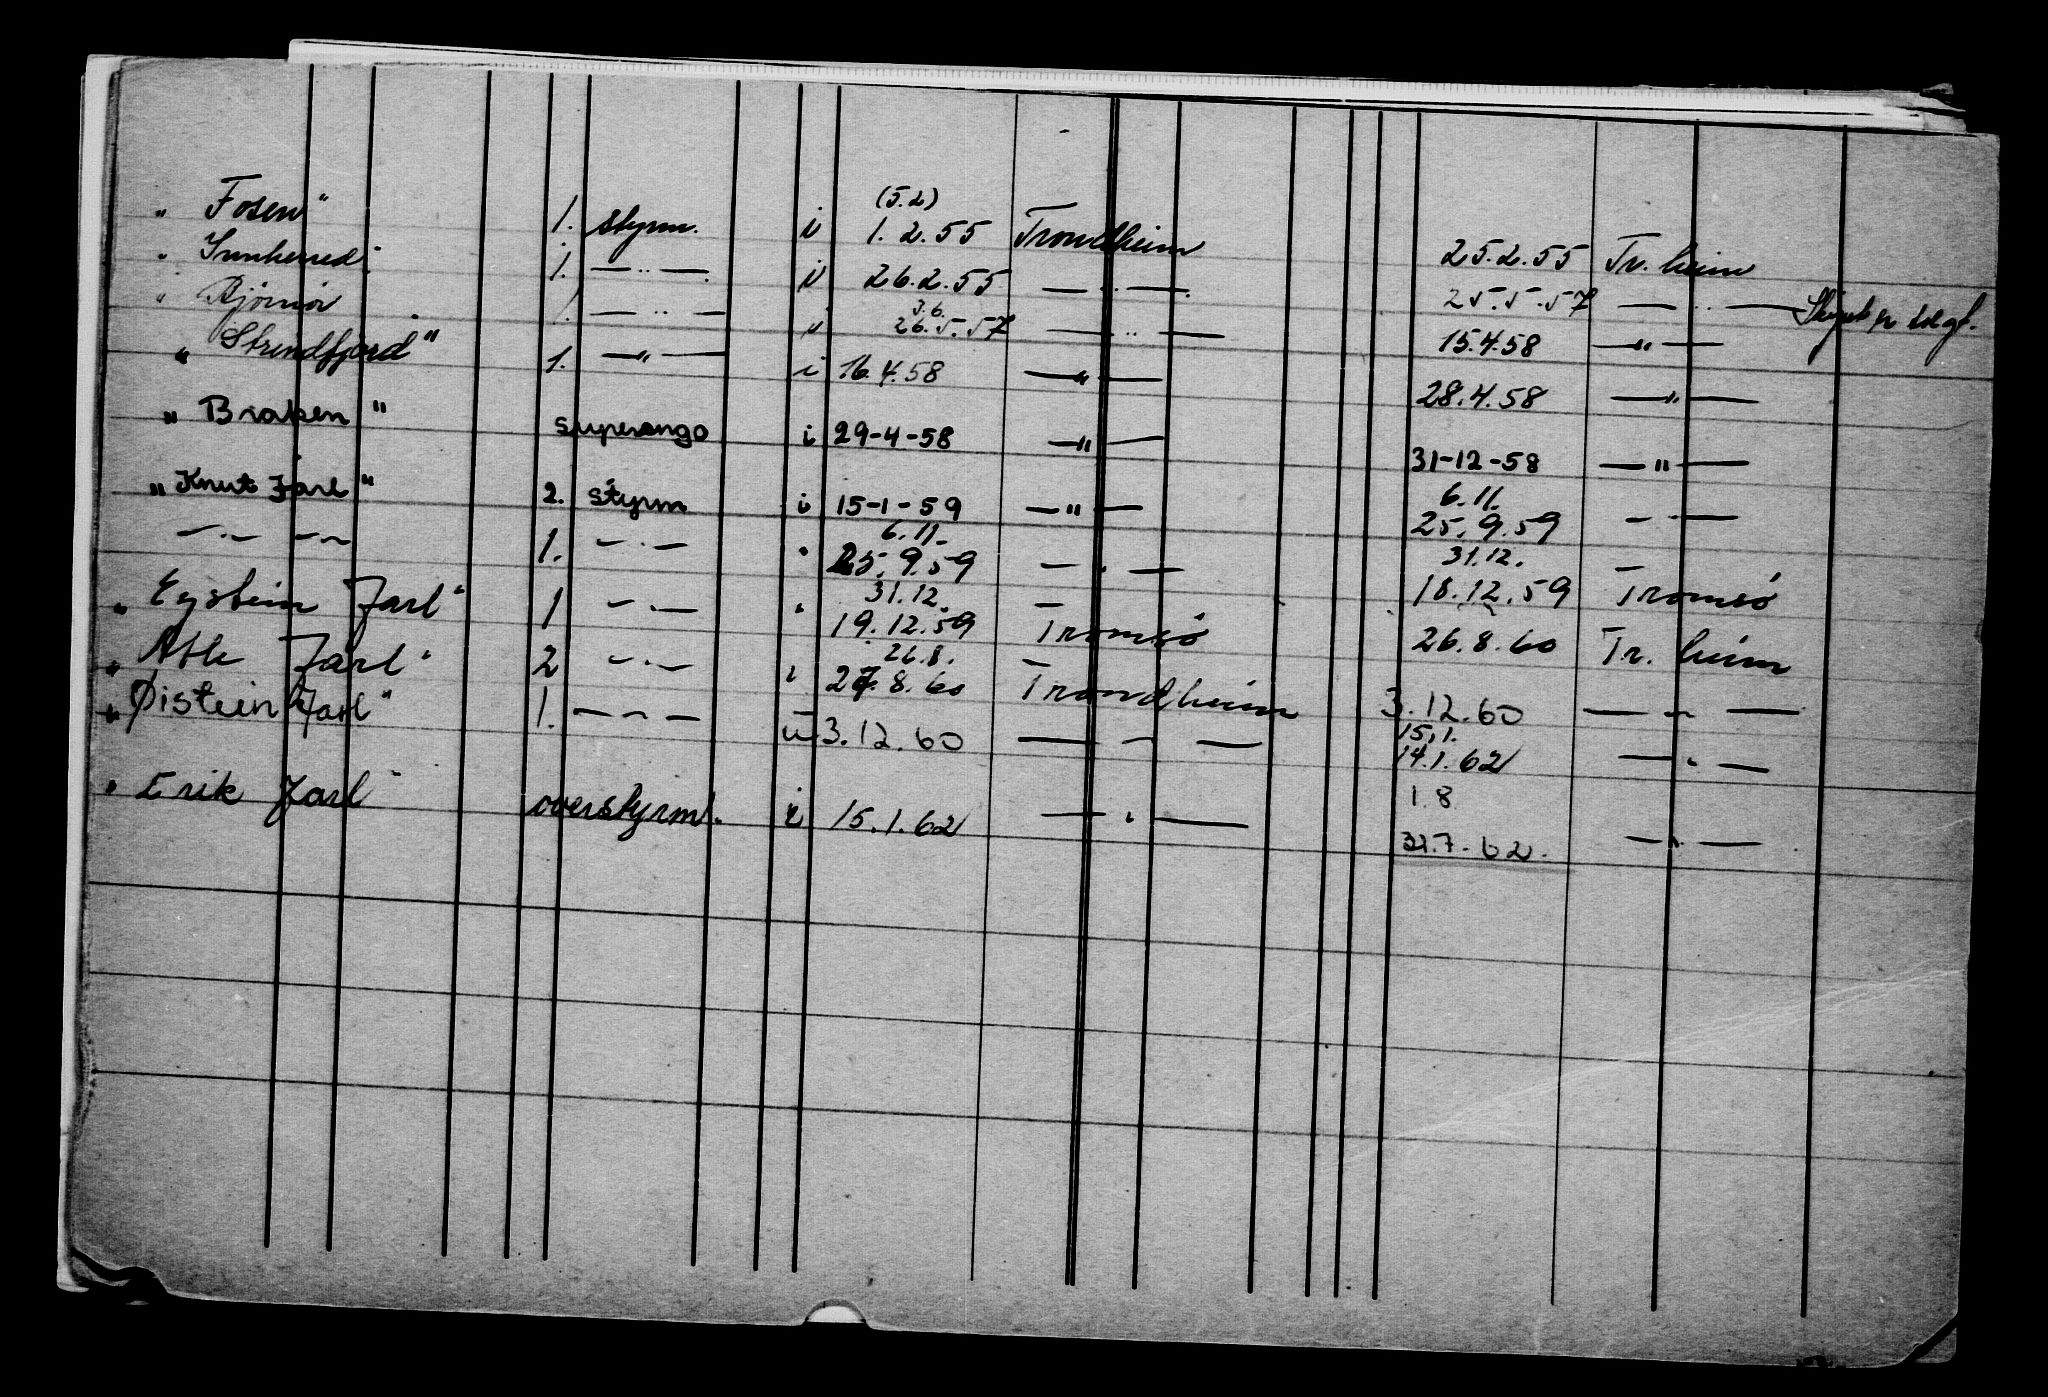 (5.2)
„ Fosen" 1. styrm. i 1.2.55 Trondheim 25.2.55 Tr.heim
„ Innherred" 1. — „ — i 26.2.55 — „ — 25.5.57 — „ — Skipet er solgt.
3.6.
„ Bjørnør 1. — „ — i 26.5.57 — „ — 15.4.58 — „ —
„ Strindfjord" 1. — „ — i 16.4.58 — „ — 28.4.58 — „ —
„ Braken " i 29-4-58 — „ — 31-12-58 — „ —
6.11.
„ Knut Jarl " 2. styrm i 15-1-59 — „ — 25.9.59 — · —
6.11. 31.12.
— „ — — „ — 1. — „ — „ 25.9.59 — „ — 18.12.59 Tromsö
31.12.
„ Eystein Jarl" 1 — „ — „ 19.12.59 Tromsö 26.8.60 Tr. heim
26.8.
„ Atle Jarl" 2 — „ — i 27.8.60 Trondheim 3.12.60 — „ —
15.1.
„ Øistein Jarl" 1. — „ — i 3.12.60 — „ — 14.1.62 — „ —
1.8
„ Erik Jarl" overstyrm. i 15.1.62 — „ — 31.7.62. — „ —